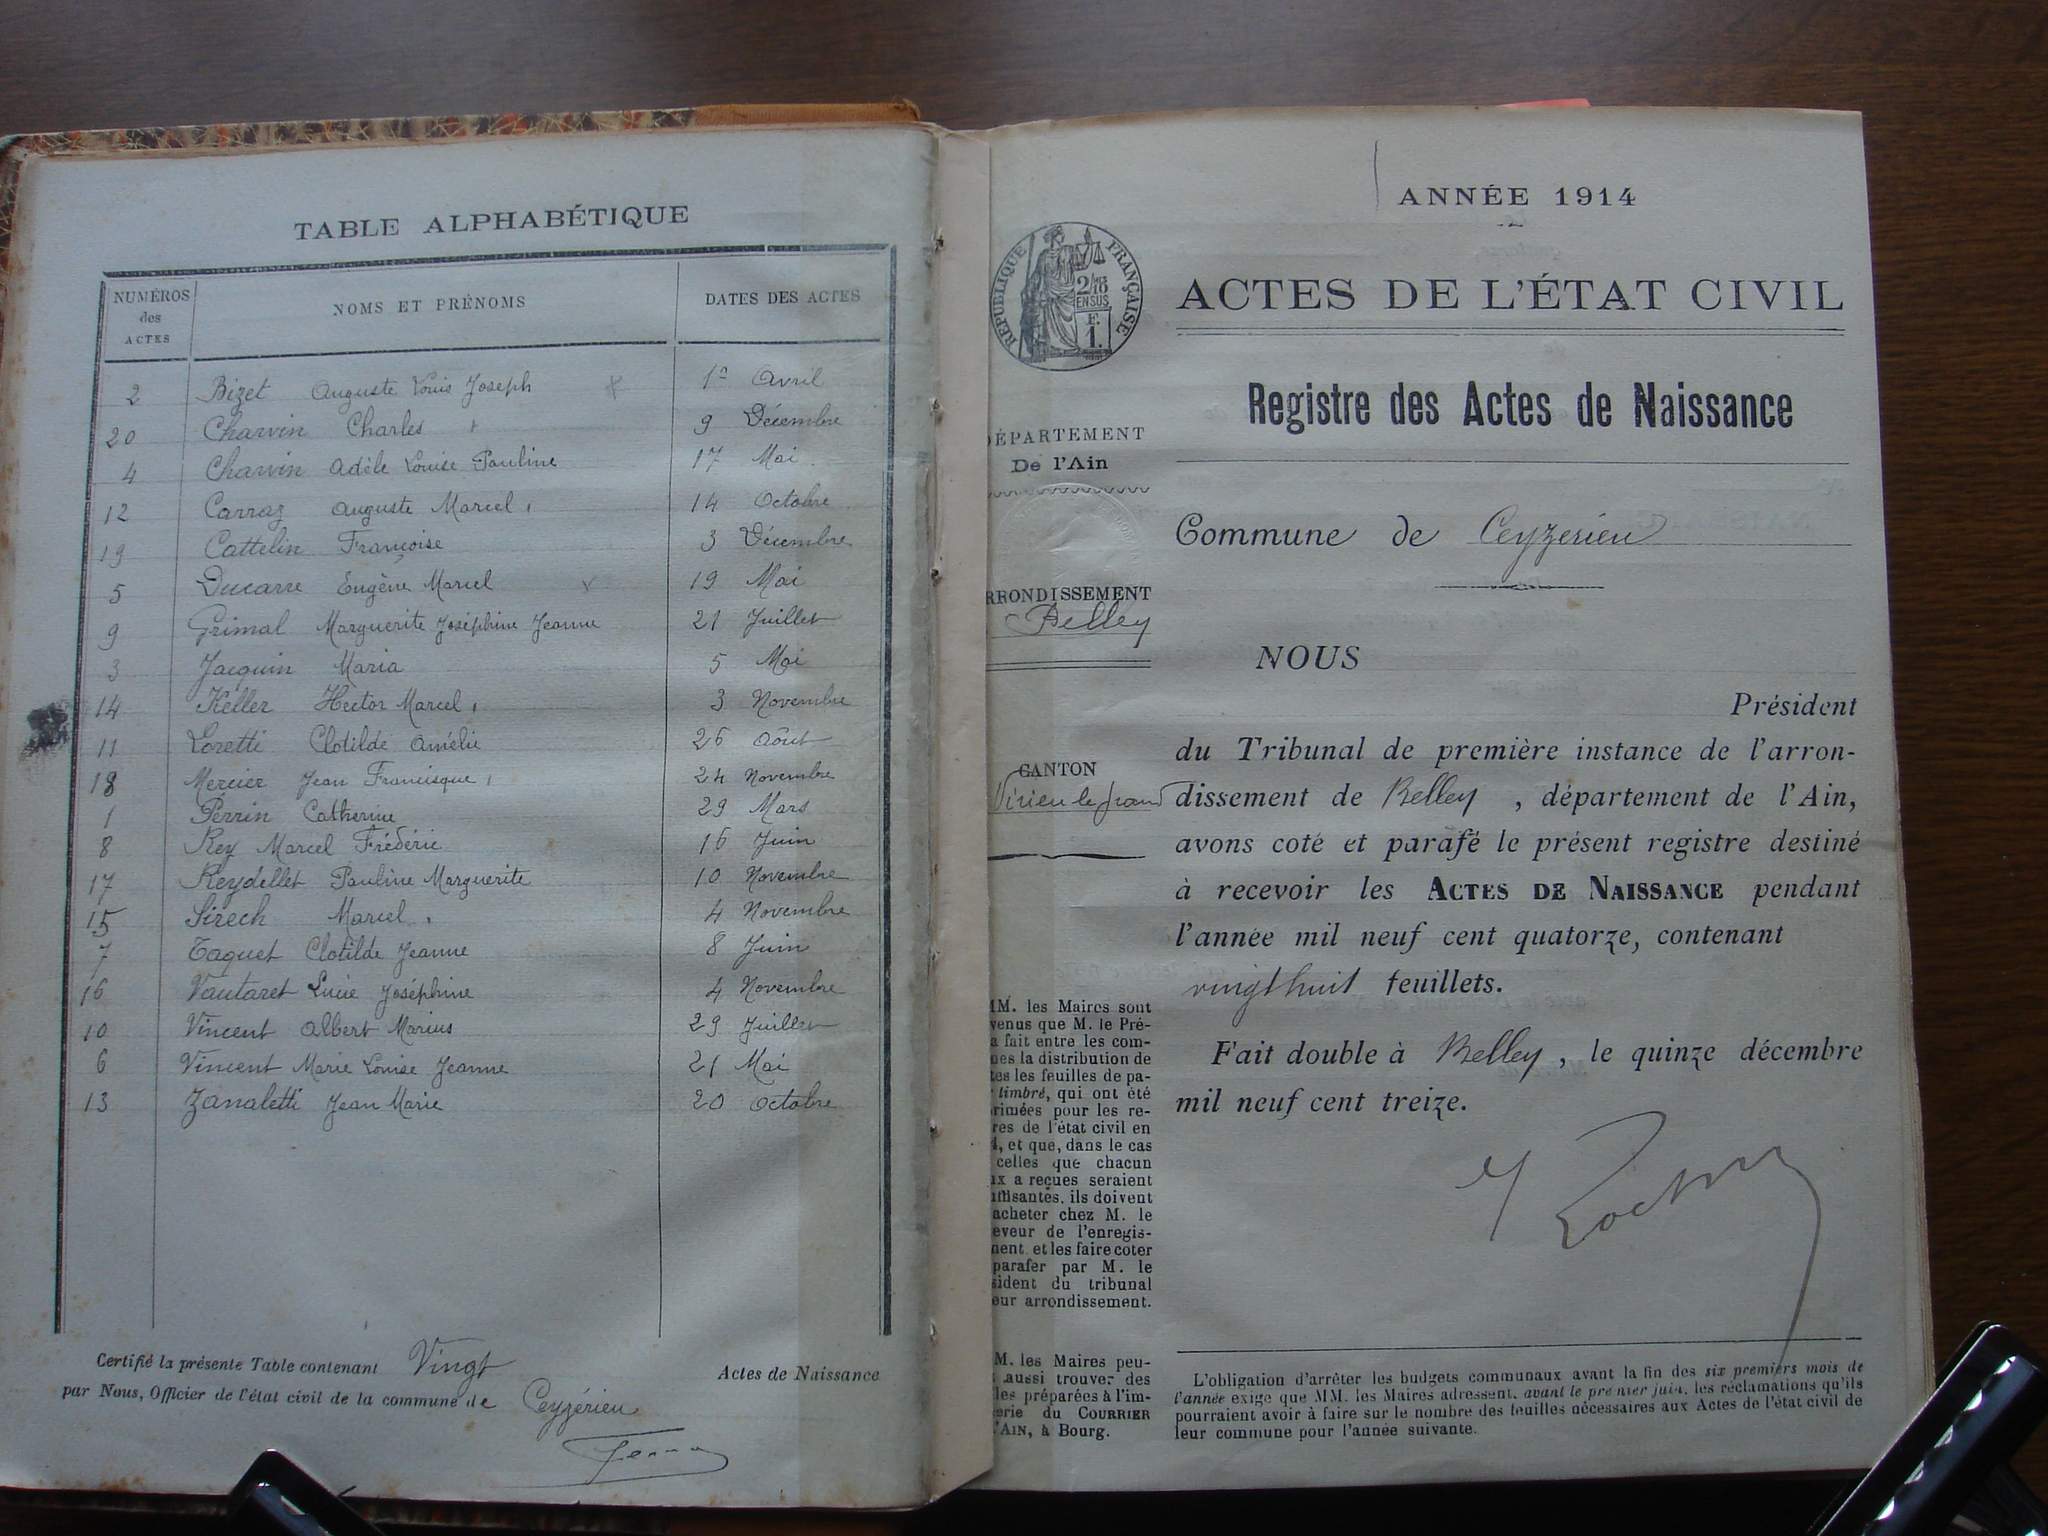 TABLE ALPHABÉTIQUE
NUMÉROS des ACTES NOMS ET PRÉNOMS DATES DES ACTES
2 Bizet Auguste Louis Joseph 1er Avril
20 Charvin Charles 9 Décembre
4 Charvin Adèle Louise Pauline 17 Mai
12 Carraz Auguste Marcel 14 Octobre
19 Cattelin Françoise 3 Décembre
5 Ducarre Eugène Marcel 19 Mai
9 Grimal Marguerite Joséphine Jeanne 21 Juillet
3 Jacquin Maria 5 Mai
14 Keller Hector Marcel 3 Novembre
11 Loretti Clotilde Amélie 26 Août
18 Mercier Jean Francisque 24 Novembre
1 Perrin Catherine 29 Mars
8 Rey Marcel Frédéric 16 Juin
17 Reydellet Pauline Marguerite 10 Novembre
15 Sirech Marcel 4 Novembre
7 Taquet Clotilde Jeanne 8 Juin
16 Vautaret Lucie Joséphine 4 Novembre
10 Vincent Albert Marius 29 Juillet
6 Vincent Marie Louise Jeanne 21 Mai
13 Zanaletti Jean Marie 20 Octobre
Certifié la présente Table contenant Vingt Actes de Naissance
par Nous, Officier de l'état civil de la commune de Ceyzérieu
RÉPUBLIQUE FRANÇAISE
2/10
EN SUS
F.
1.
ÉPARTEMENT
De l'Ain
RRONDISSEMENT
Belley
CANTON
Virieu le grand
MM. les Maires sont
venus que M. le Pré-
a fait entre les com-
nes la distribution de
tes les feuilles de pa-
timbré, qui ont été
rimées pour les re-
res de l'état civil en
4, et que, dans le cas
celles que chacun
ux a reçues seraient
uffisantes, ils doivent
acheter chez M. le
eveur de l'enregis-
ment et les faire coter
parafer par M. le
sident du tribunal
eur arrondissement.
M. les Maires peu-
t aussi trouver des
les préparées à l'im-
erie du COURRIER
'AIN, à Bourg.
ANNÉE 1914
ACTES DE L'ÉTAT CIVIL
Registre des Actes de Naissance
Commune de Ceyzerieu
NOUS
Président
du Tribunal de première instance de l'arron-
dissement de Belley, département de l'Ain,
avons coté et parafé le présent registre destiné
à recevoir les ACTES DE NAISSANCE pendant
l'année mil neuf cent quatorze, contenant
vingt huit feuillets.
Fait double à Belley, le quinze décembre
mil neuf cent treize.
L'obligation d'arrêter les budgets communaux avant la fin des six premiers mois de
l'année exige que MM. les Maires adressent, avant le premier juin, les réclamations qu'ils
pourraient avoir à faire sur le nombre des feuilles nécessaires aux Actes de l'état civil de
leur commune pour l'année suivante.